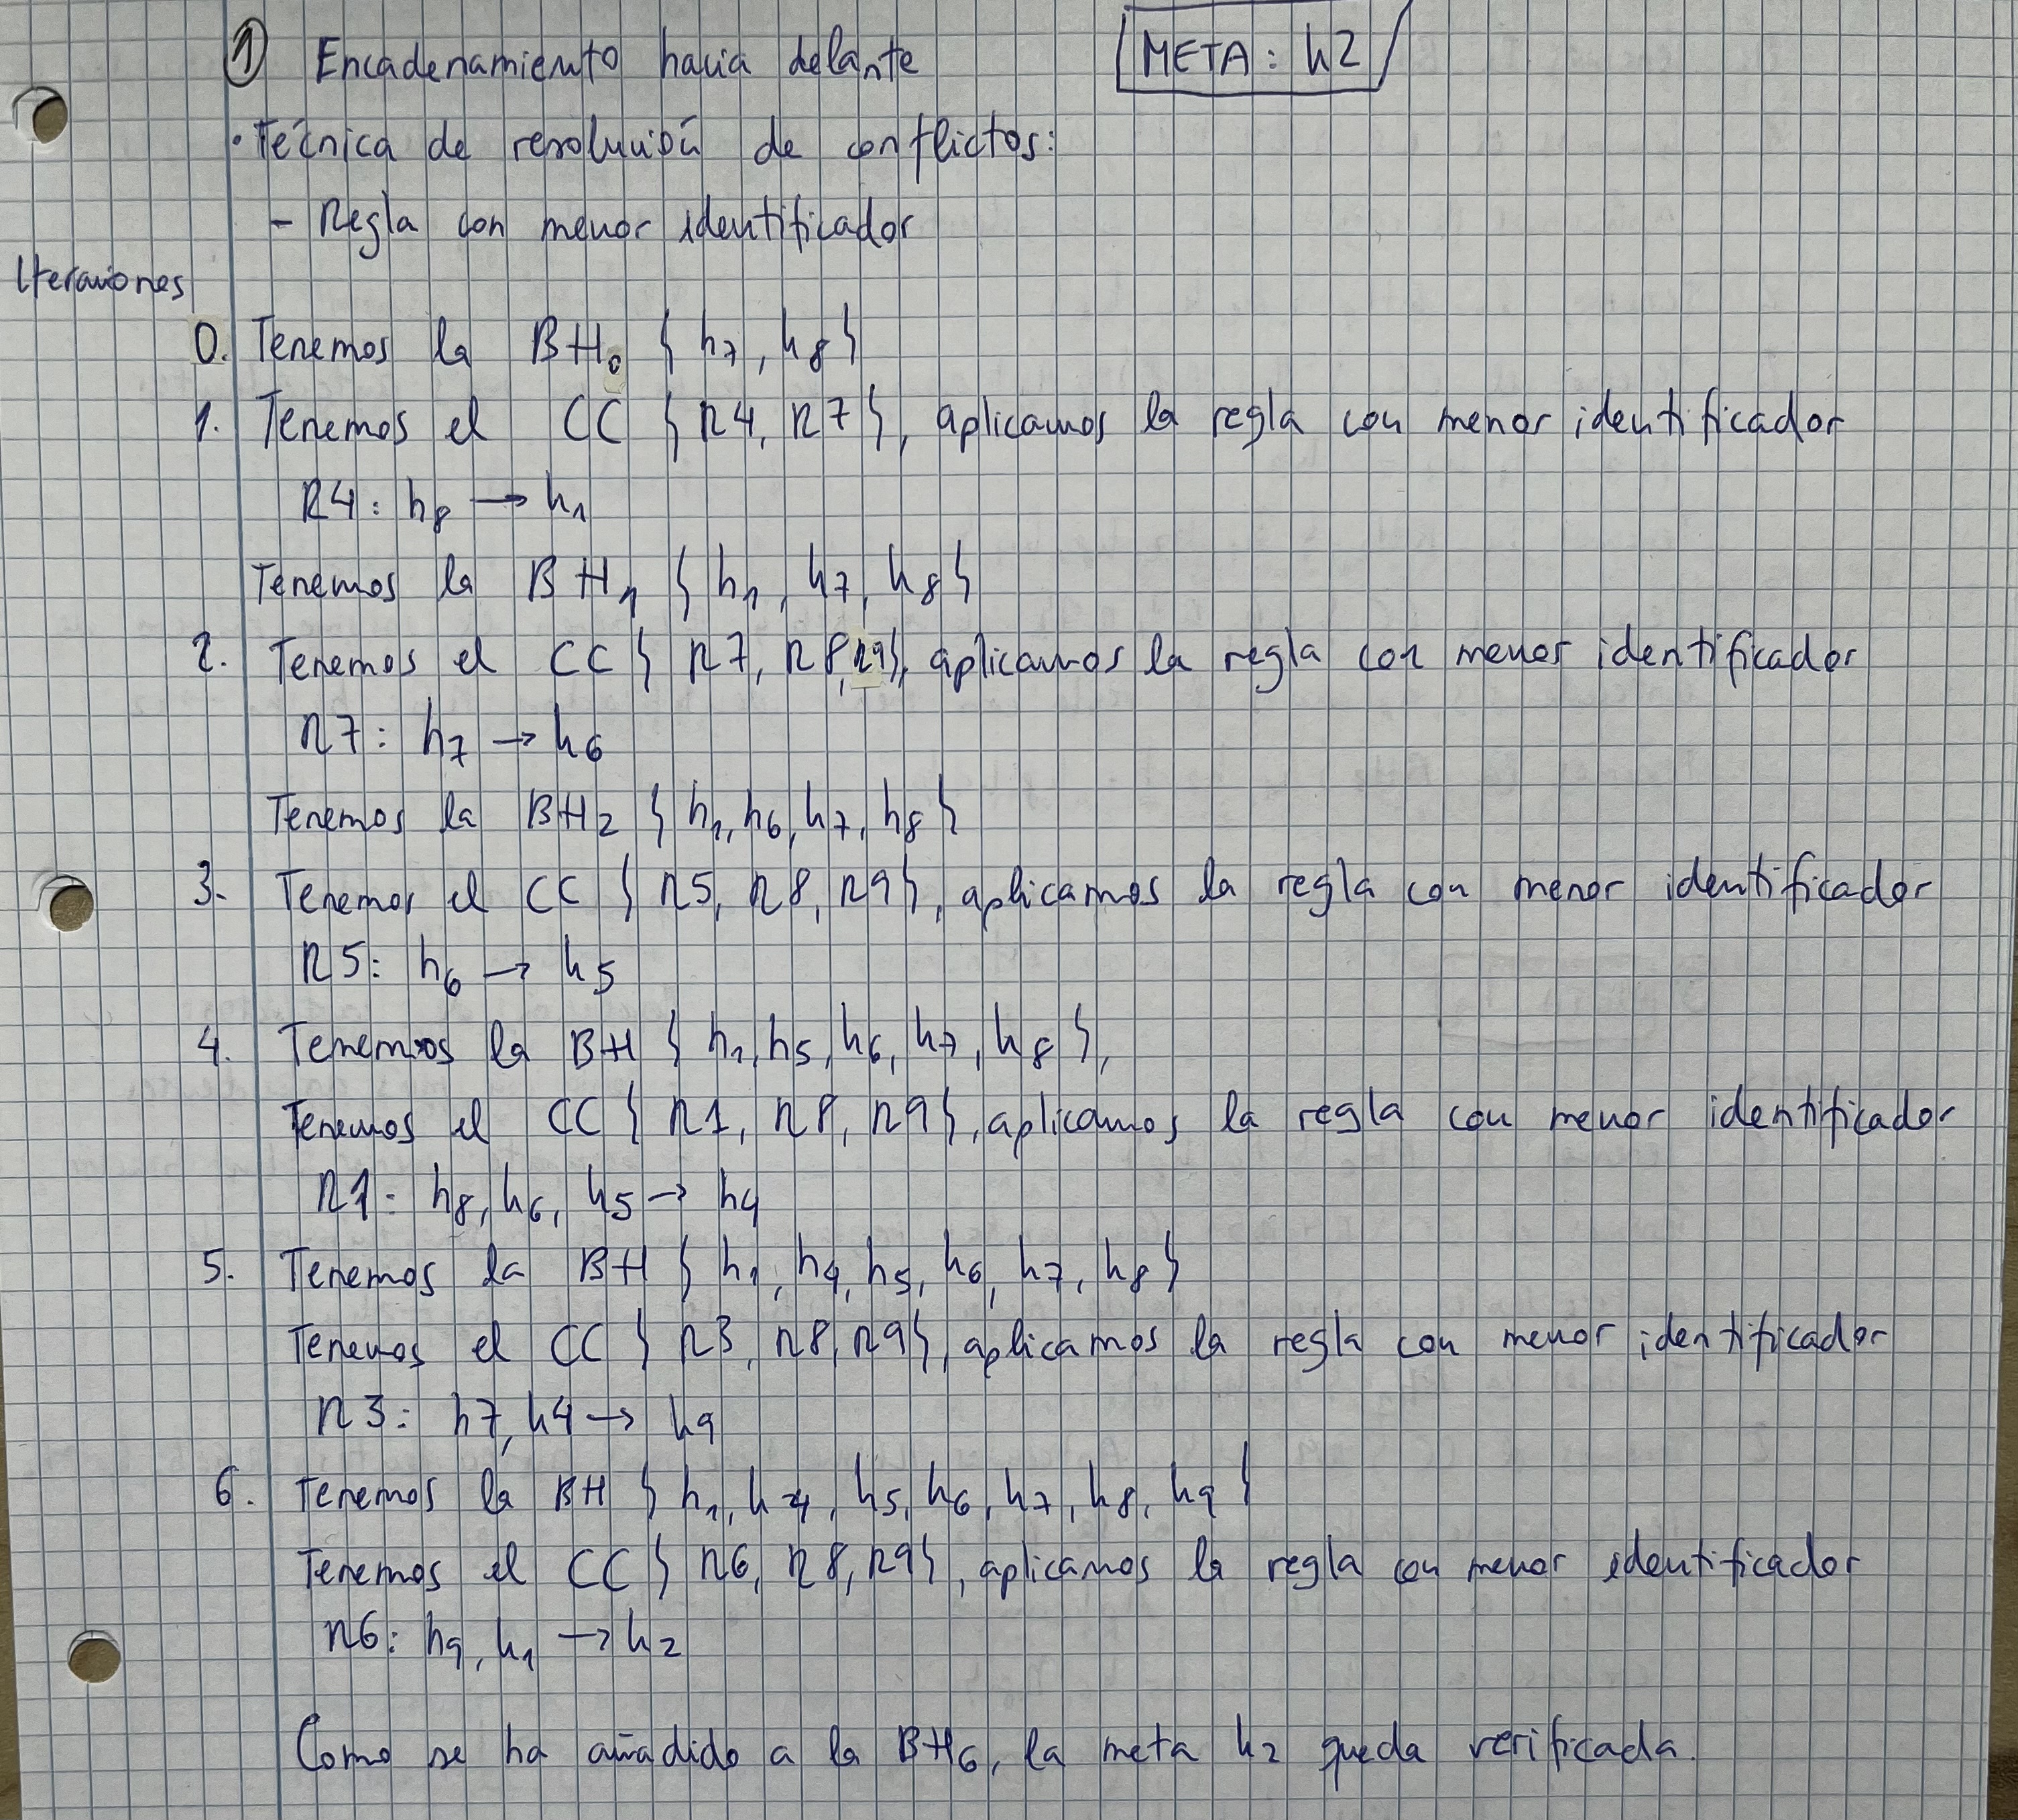 ① Encadenamiento hacia delante
META: h2
• Técnica de resolución de conflictos:
- Regla con menor identificador
Iteraciones
0. Tenemos la BH₀ { h₇, h₈ }
1. Tenemos el CC { R4, R7 }, aplicamos la regla con menor identificador
R4: h₈ → h₁
Tenemos la BH₁ { h₁, h₇, h₈ }
2. Tenemos el CC { R7, R8, R9 }, aplicamos la regla con menor identificador
R7: h₇ → h₆
Tenemos la BH₂ { h₁, h₆, h₇, h₈ }
3. Tenemos el CC { R5, R8, R9 }, aplicamos la regla con menor identificador
R5: h₆ → h₅
4. Tenemos la BH { h₁, h₅, h₆, h₇, h₈ },
Tenemos el CC { R1, R8, R9 }, aplicamos la regla con menor identificador
R1: h₈, h₆, h₅ → h₄
5. Tenemos la BH { h₁, h₄, h₅, h₆, h₇, h₈ }
Tenemos el CC { R3, R8, R9 }, aplicamos la regla con menor identificador
R3: h7, h4 → h₉
6. Tenemos la BH { h₁, h₄, h₅, h₆, h₇, h₈, h₉ }
Tenemos el CC { R6, R8, R9 }, aplicamos la regla con menor identificador
R6: h₉, h₁ → h₂
Como se ha añadido a la BH₆, la meta h₂ queda verificada.